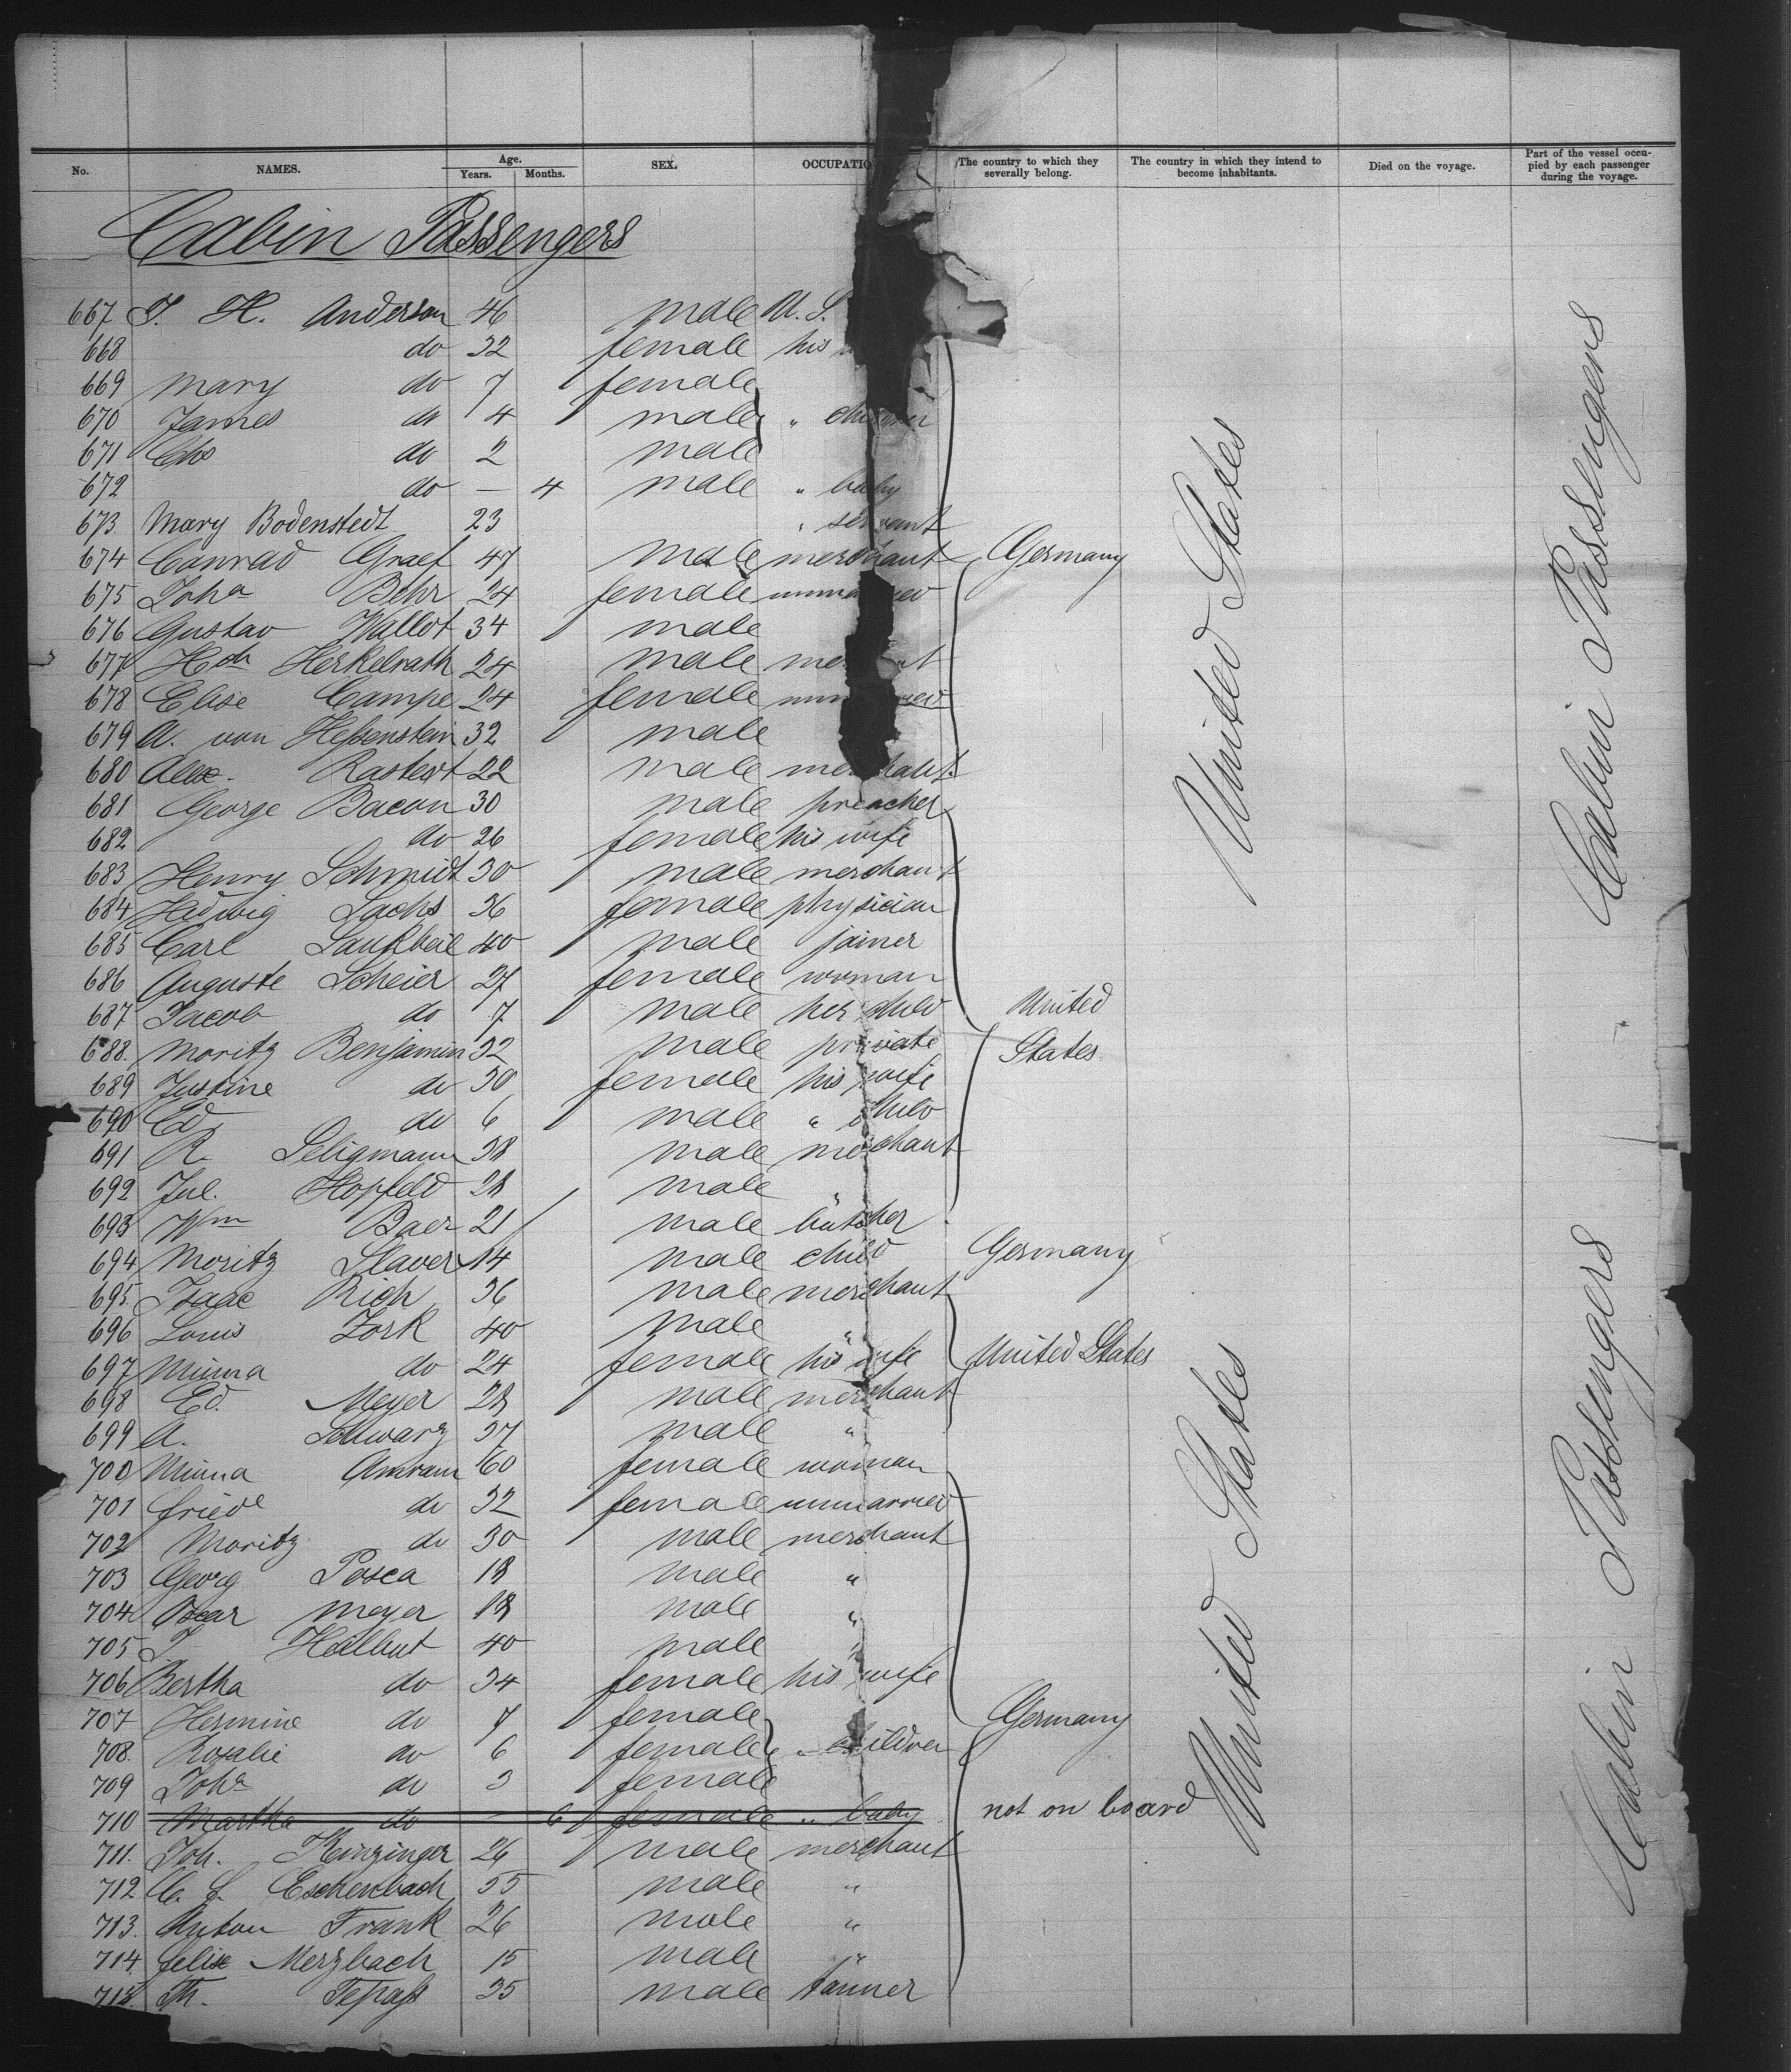 No. NAMES. Age. Years. Months. SEX. OCCUPATIO The country to which they severally belong. The country in which they intend to become inhabitants. Died on the voyage. Part of the vessel occupied by each passenger during the voyage.
Cabin Passengers
667 J. H. Anderson 46 male U. S.
668 do 32 female his
669 Mary do 7 female
670 James do 4 male " children
671 Chs do 2 male
672 do — 4 male " baby
673. Mary Bodenstedt 23 " servant
674 Conrad Graef 47 male merchant Germany
675 Joha Behr 24 female unmarried
676 Gustav Wallot 34 male
677 Hch Herkelrath 24 male merchant
678 Elise Campe 24 female unmarried
679 A. von Heßenstein 32 male
680 Alex. Rastert 22 male merchant
681 George Bacon 30 male preacher
682 do 26 female his wife
683 Henry Schmidt 30 male merchant
684 Hedwig Sachs 36 female physician
685 Carl 40 male joiner
686 Auguste Scheier 27 female woman
687 Jacob do 7 male her child United
688. Moritz Benjamin 32 male private States
689 Justine do 30 female his wife
690 Ed. do 6 male " child
691 R. Seligmann 38 male merchant
692 Jul. Hopfeld 28 male "
693 Wm Baer 21 male butcher
694 Moritz 14 male child Germany
695. Isaac Rich 36 male merchant
696 Louis Zork 40 male "
697 Minna do 24 female his wife United States
698 Ed. Meyer 28 male merchant
699 A. Schwarz 37 male "
700 Minna Amram 60 female woman
701 Friede do 32 female unmarried
702 Moritz do 30 male merchant
703 Georg Posca 18 male "
704 Oscar Meyer 18 male "
705 J. Heilbut 40 male "
706 Bertha do 34 female his wife
707 Hermine do 7 female Germany
708. Rosalie do 6 female " children
709 Joha do 3 female
710 Martha do — 6 female " baby not on board
711. Joh. Kinzinger 26 male merchant
712 C. F. Eschenbach 35 male "
713. Anton Frank 26 male "
714. Felix Merzbach 15 male "
715. Th. Tepaß 35 male tanner
United States
Cabin Passengers
United States
Cabin Passengers